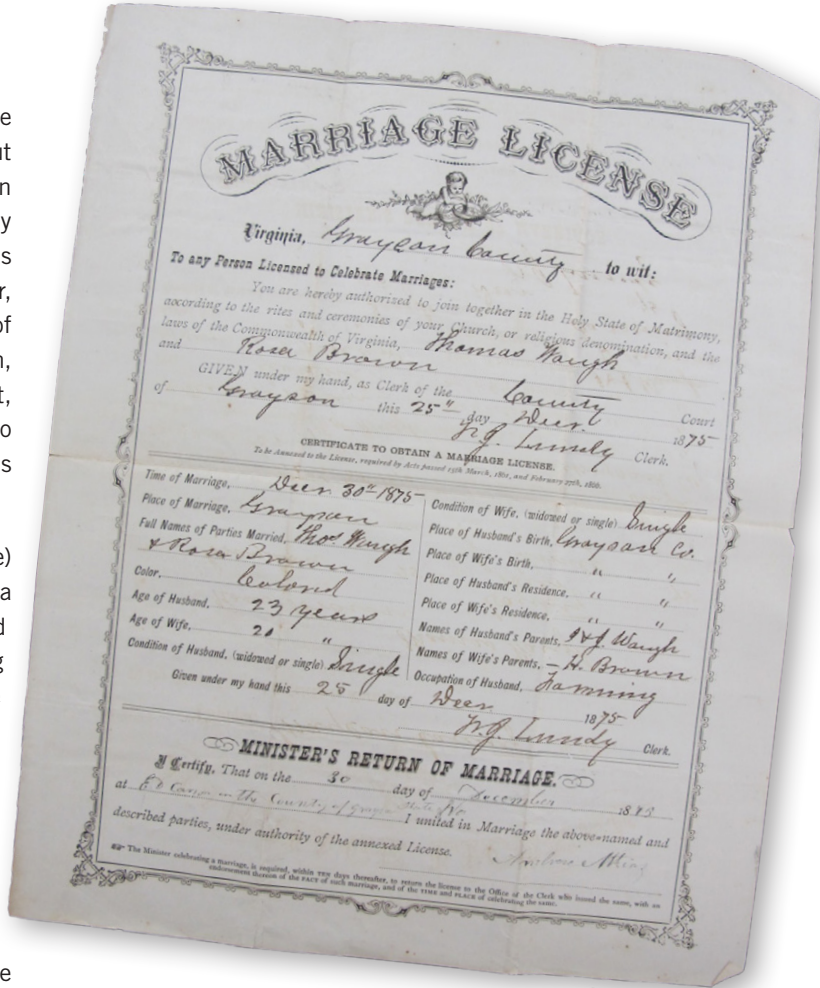 e
ut
n
y
s
r,
of
n,
t,
o
s
e)
a
d
g
e
MARRIAGE LICENSE
Virginia, Grayson County to wit:
To any Person Licensed to Celebrate Marriages:
You are hereby authorized to join together in the Holy State of Matrimony,
according to the rites and ceremonies of your Church, or religious denomination, and the
laws of the Commonwealth of Virginia, Thomas Waugh
and Rosa Brown
GIVEN under my hand, as Clerk of the County Court
of Grayson this 25" day Decr. 1875
Clerk.
CERTIFICATE TO OBTAIN A MARRIAGE LICENSE.
To be Annexed to the License, required by Acts passed 15th March, 1861, and February 27th, 1866.
Time of Marriage, Decr 30" 1875
Place of Marriage, Grayson
Full Names of Parties Married, Thos Waugh
& Rosa Brown
Color, Colord
Age of Husband, 23 years
Age of Wife, 20 "
Condition of Husband, (widowed or single) Single
Condition of Wife, (widowed or single) Single
Place of Husband's Birth, Grayson Co.
Place of Wife's Birth, " "
Place of Husband's Residence, " "
Place of Wife's Residence, " "
Names of Husband's Parents, Waugh
Names of Wife's Parents, – H. Brown
Occupation of Husband, Farming
Given under my hand this 25 day of Decr 1875
W.J. Lundy Clerk.
MINISTER'S RETURN OF MARRIAGE.
I Certify, That on the 30 day of December 18
at in the County of State I united in Marriage the above-named and
described parties, under authority of the annexed License.
The Minister celebrating a marriage, is required, within TEN days thereafter, to return the license to the Office of the Clerk who issued the same, with an
endorsement thereon of the FACT of such marriage, and of the TIME and PLACE of celebrating the same.